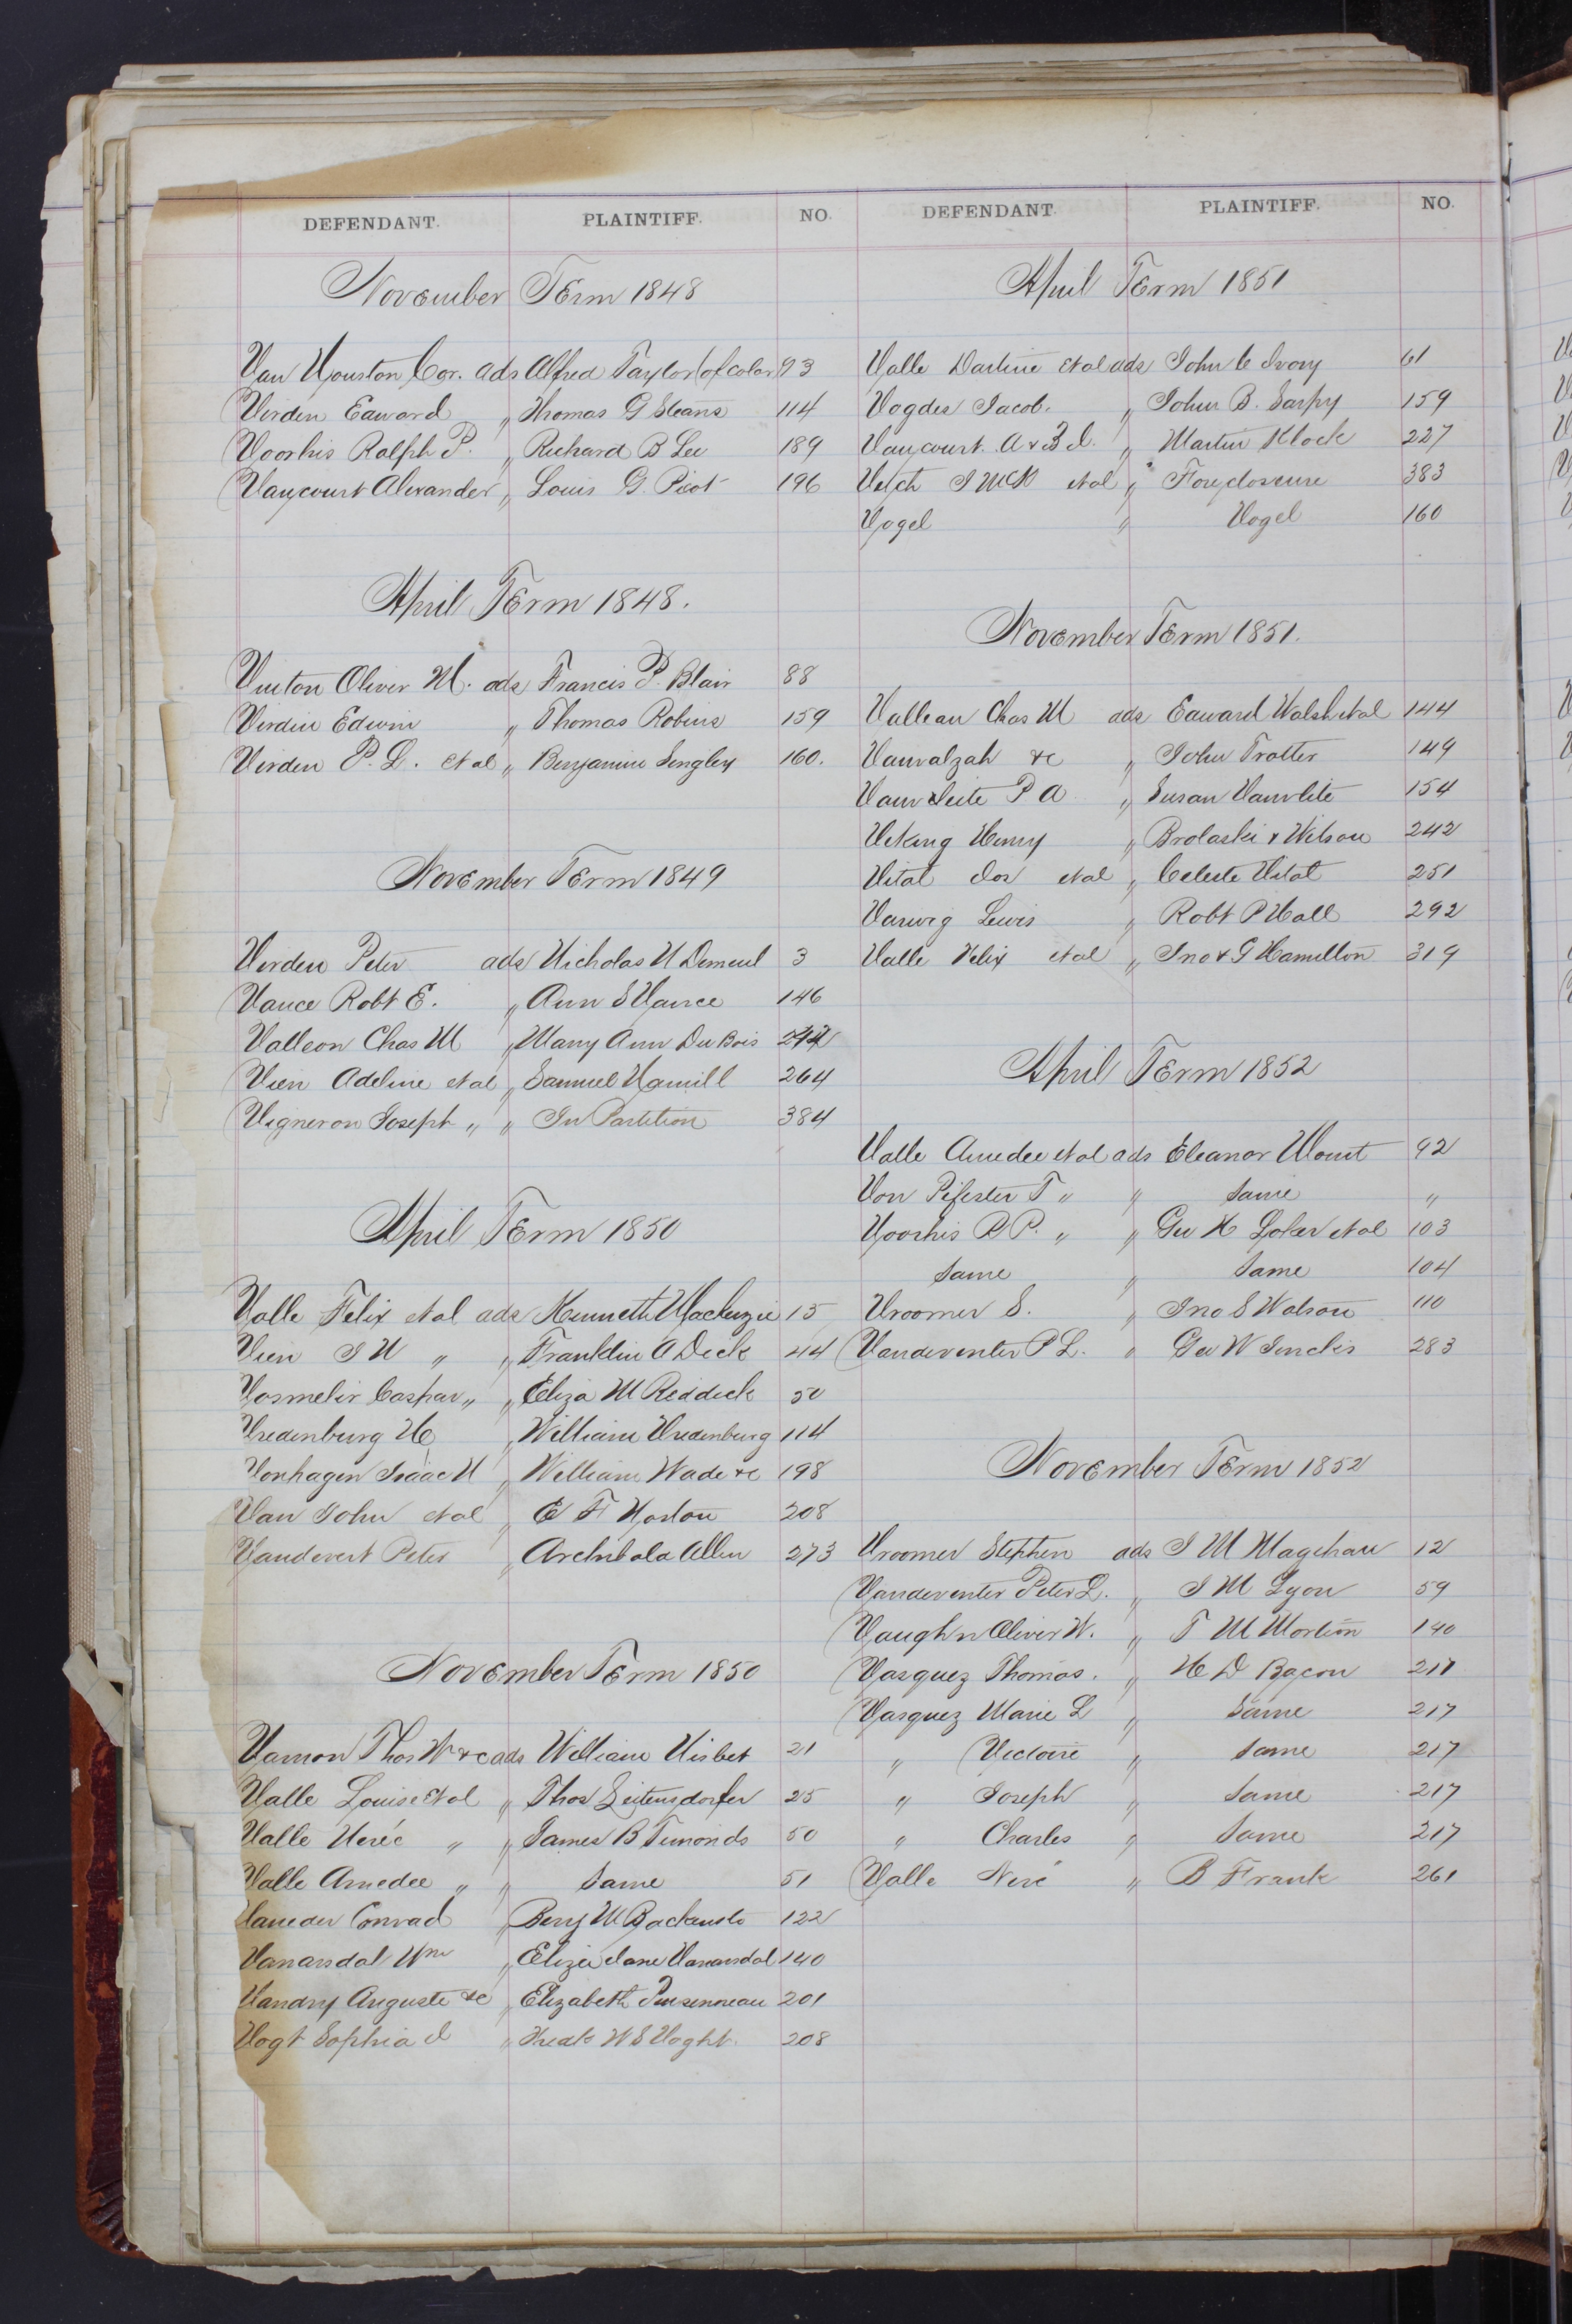 DEFENDANT. PLAINTIFF. NO.
November Term 1848
Van Houston Cor. ads Alfred Taylor (of color) 93
Virden Edward " Thomas G Steans 114
Voorhis Ralph P. " Richard B Lee 189
Vaycourt Alexander " Louis G. Picot 196
April Term 1848.
Vinton Oliver M. ads Francis P. Blair 88
Virden Edwin " Thomas Robins 159
Virden P. L. et al " Benjamin Singley 160.
November Term 1849
Virden Peter ads Nicholas N Demenil 3
Vance Robt E. " Ann S Vance 146
Valleon Chas M " Mary Ann Du Bois
Vien Adeline et al " Samuel Hamill 264
Vigneron Joseph " " In Partition 384
April Term 1850
Valle Felix et al ads Kenneth Mackenzie 15
Vien J N " " Franklin A Dick 44
Vosmelir Caspar " " Eliza M Reddick 50
Vredenburg H " William Vredenburg 114
Vonhagen Isaac N " William Wade &c 198
Van John et al " E F Horton 208
Vandevert Peter " Archibald Allen 273
November Term 1850
Vamon Thos W &c ads William Nisbet 21
Valle Louise et al " Thos Leitensdorfer 25
Valle Neréc " " James B Timonds 50
Valle Amedee " " Same 51
Conrad " Benj M Backensto 122
Vanarsdal Wm " Eliza Jane Vanarsdal 140
Vandry Auguste &c " Elizabeth Pensenneau 201
Vogt Sophia J " Fredk W S Voght. 208
DEFENDANT. PLAINTIFF. NO.
April Term 1851
Valle Dartine et al ads John C Ivory 61
Vogdes Jacob. " John B. Sarpy 159
Vaycourt A & B J. " Martin Klock 227
Veitch J McK et al " Foreclosure 383
Vogel " Vogel 160
November Term 1851.
Vallean Chas M ads Edward Walsh et al 144
Vanvalzah &c " John Trotter 149
Vanvleite P A " Susan Vanvlite 154
Viking Henry " Brolaski & Wilson 242
Vital Jos et al " Celeste Vital 251
Varwig Lewis " Robt P Hall 292
Valle Felix et al " Jno & G Hamilton 319
April Term 1852
Valle Amedee et al ads Eleanor Mount 92
Von Pifester T " " Same "
Voorhis R P. " " Geo K Loker et al 103
Same " Same 104
Vroomer S. " Jno S Watson 110
Vandeventer P L. " Geo W Jencks 283
November Term 1852
Vroomer Stephen ads J M Magehan 12
Vandeventer Peter L. " J M Lyon 59
Vaughn Oliver W. " T M Martin 140
Vasquez Thomas. " H D Bacon 217
Vasquez Marie L " Same 217
" Victoire " Same 217
" Joseph " Same 217
" Charles " Same 217
Valle Neré " B Frank 261